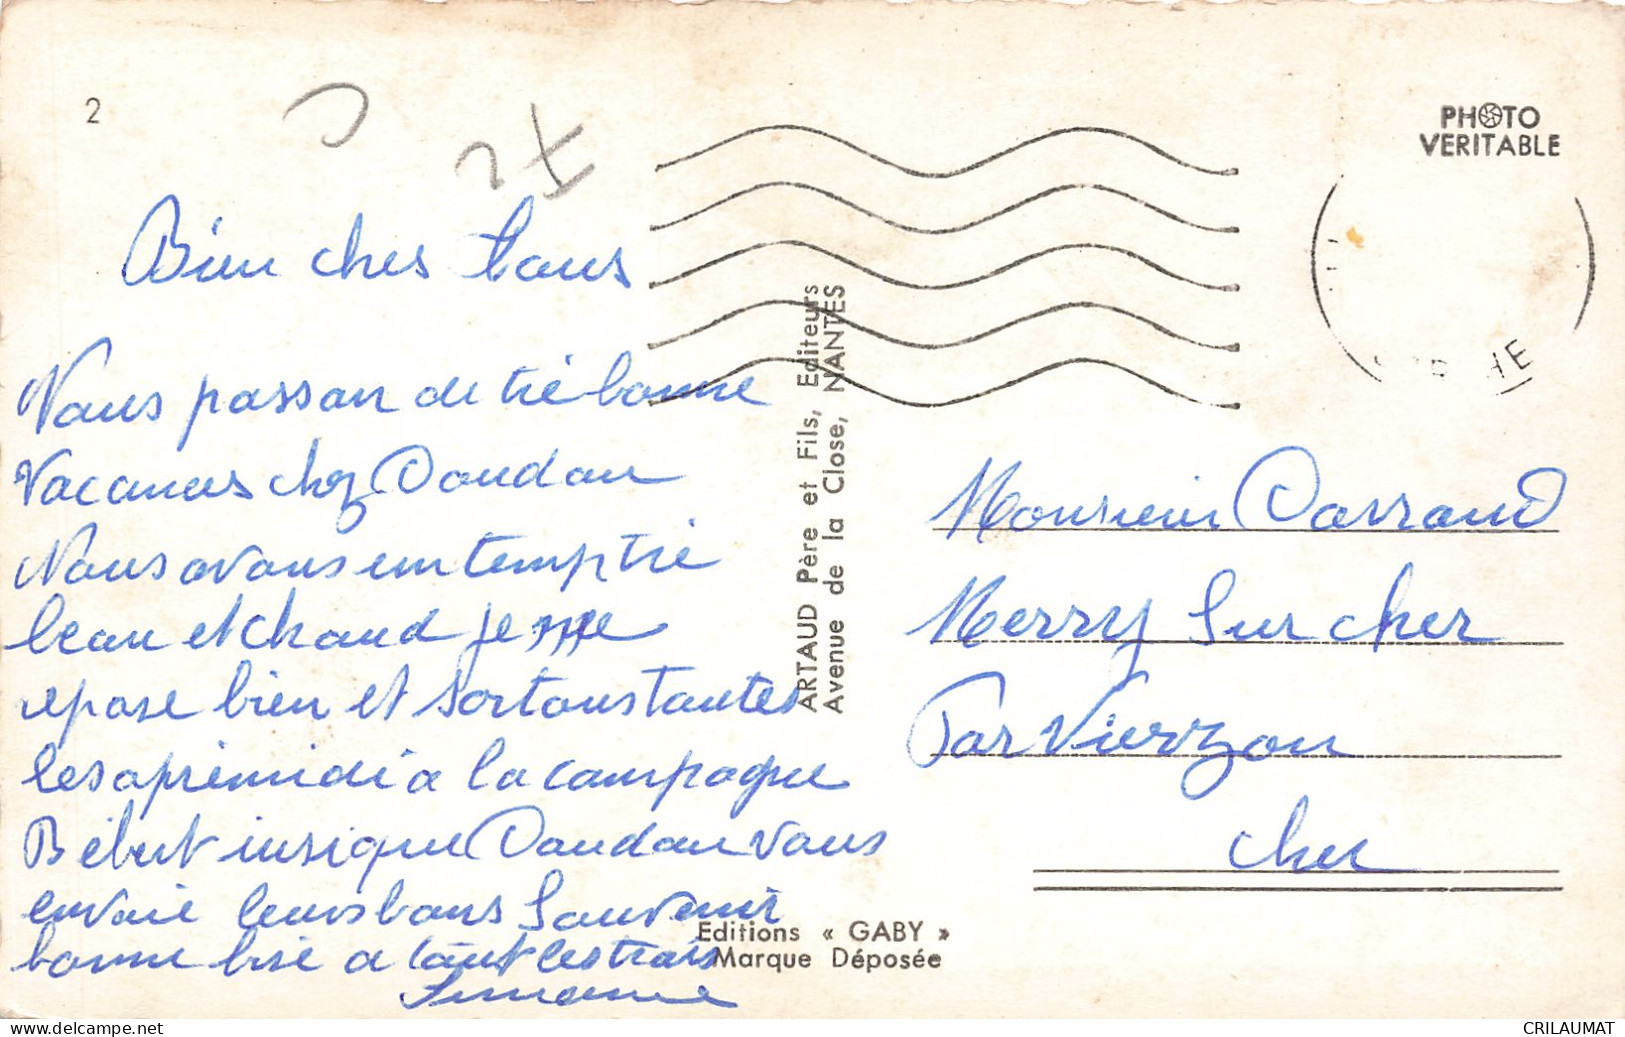 2
PHOTO
VERITABLE
Bien chers tous
Nous passon de trè bonne
Vacances chez Daudau
Nous avons un temp trè
beau et chaud je me
repose bien et sortons toutes
les aprèmidi a la campagne
Bébert insi que Daudau vous
envoie leurs bons Souvenir
bonne bise a tout les trois
Simone
ARTAUD Père et Fils, Editeurs
Avenue de la Close, NANTES
Editions « GABY »
Marque Déposée
Monsieur Darraud
Merry Sur cher
Par Vierzon
Cher
delcampe.net
CRILAUMAT